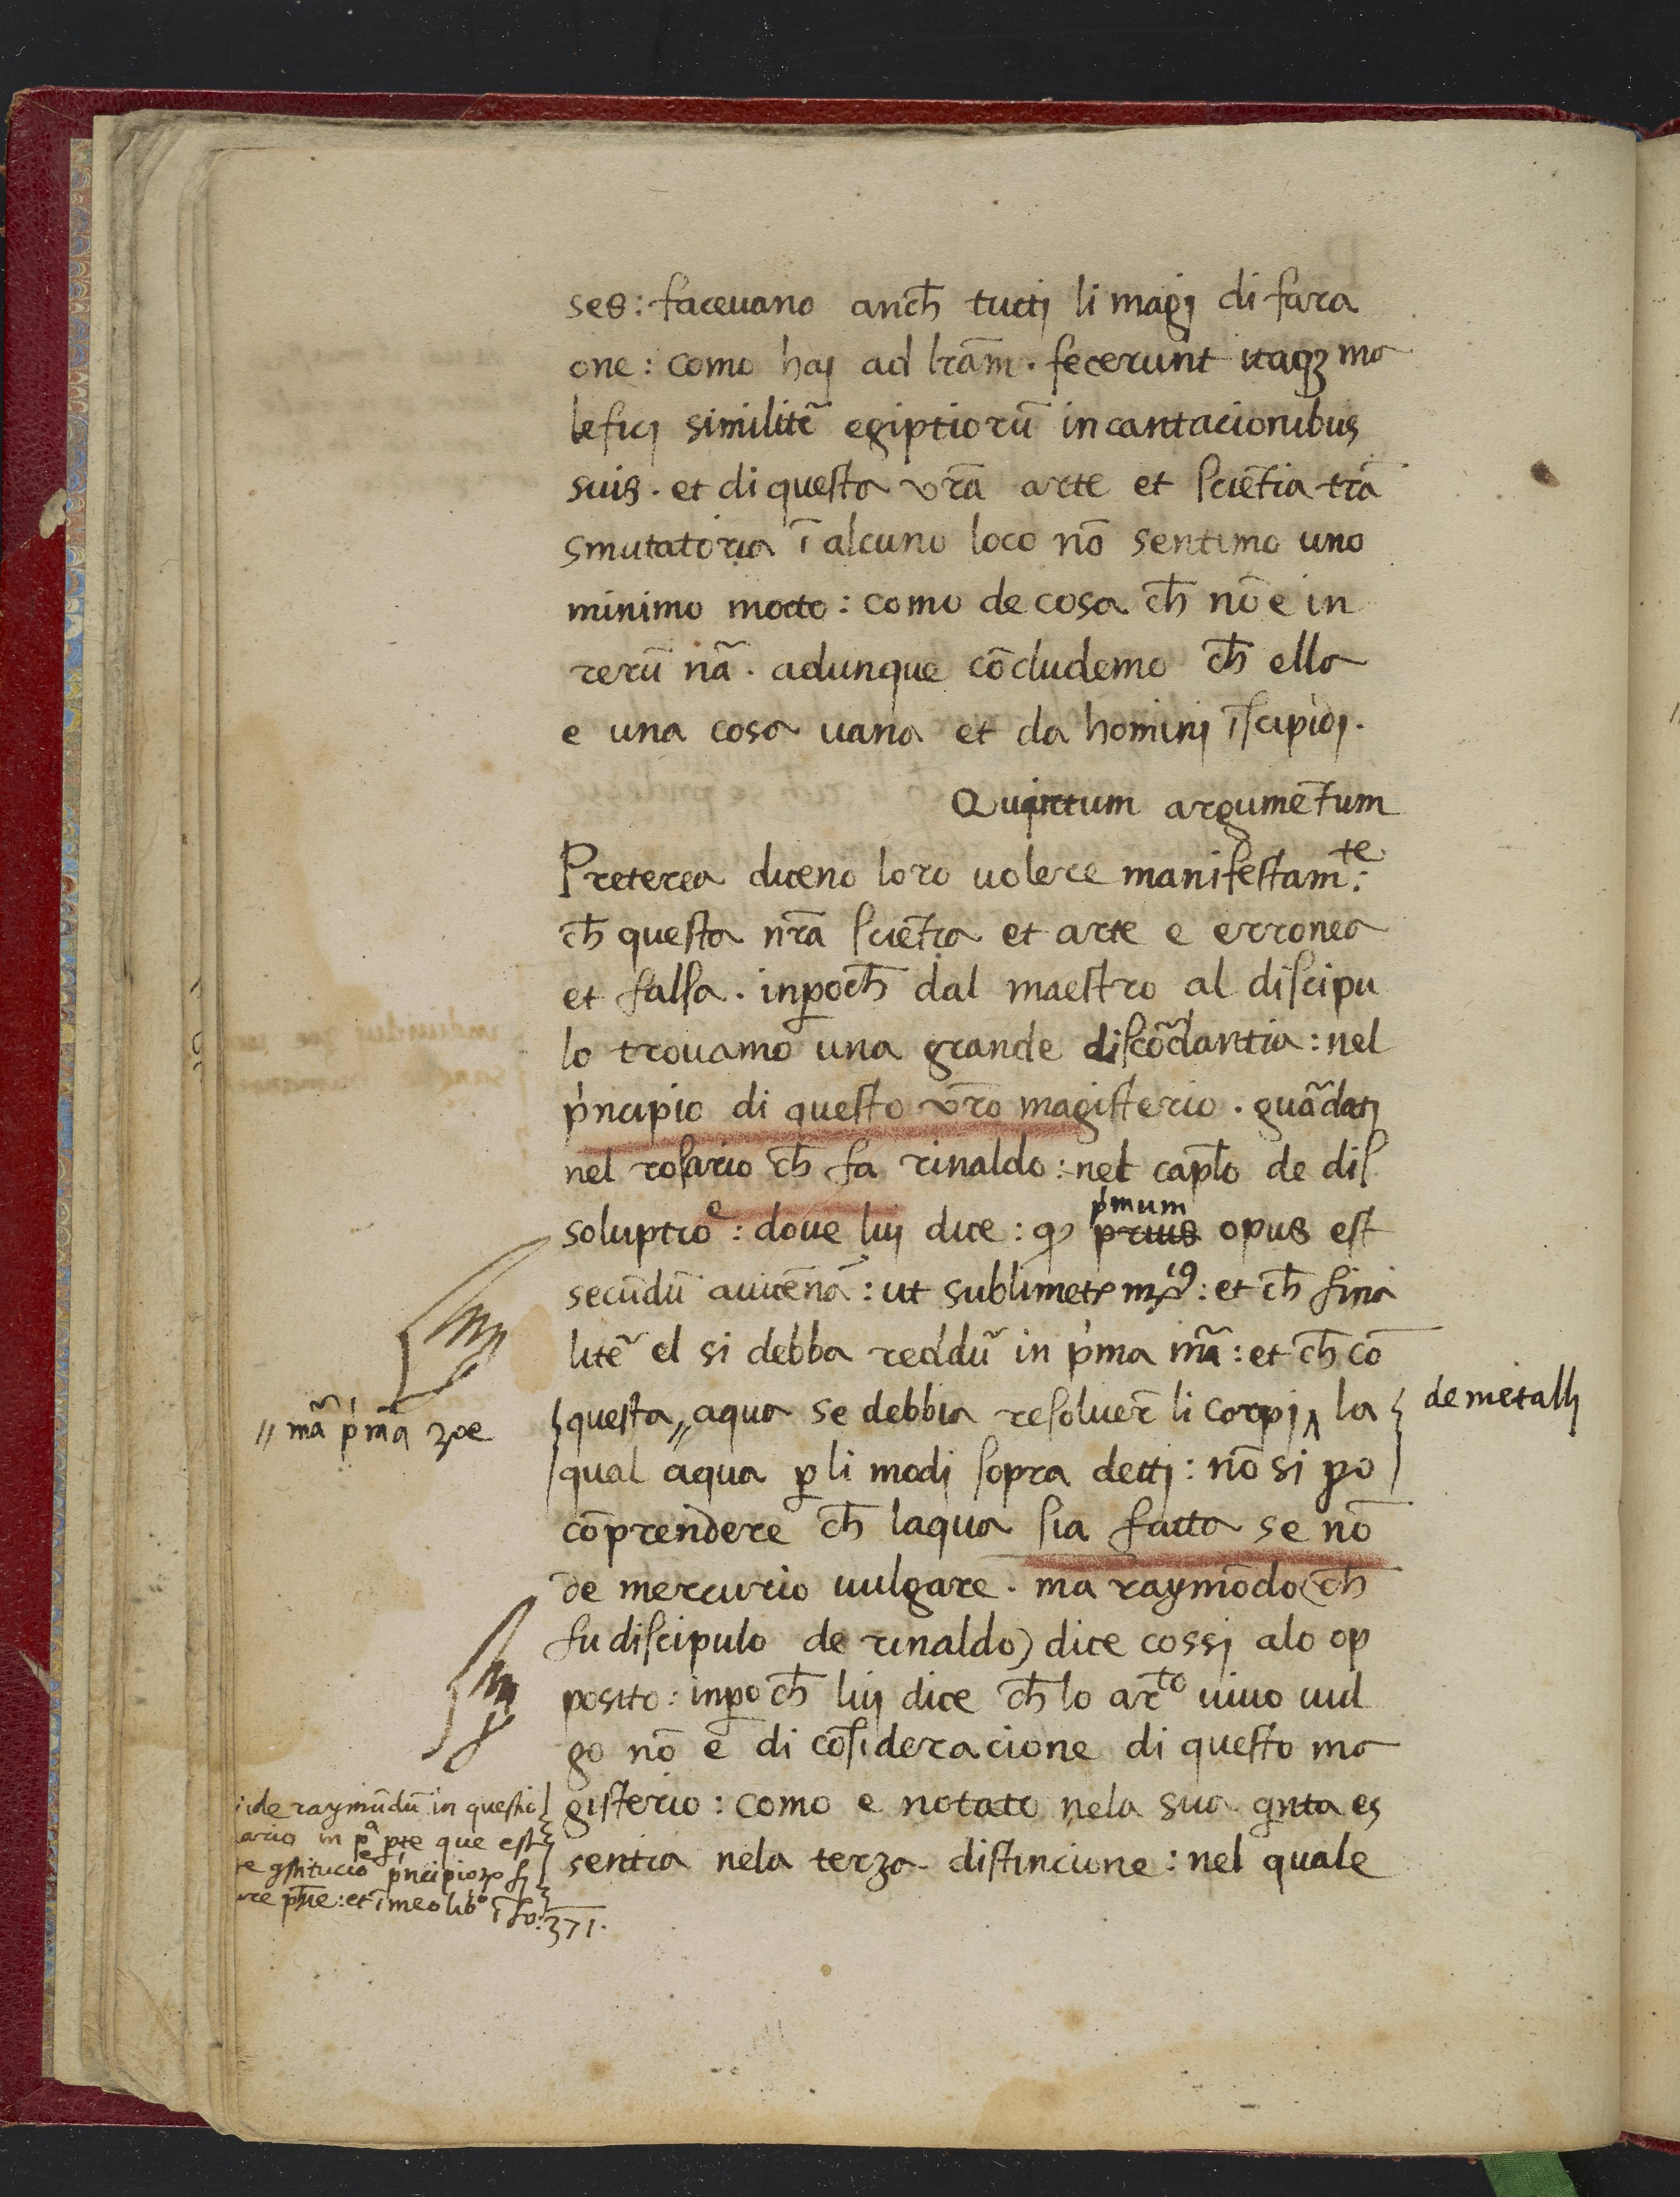 ses: faceuano anch̄ tuctj li magj di fara
one: como haj ad lr̄am. fecerunt itaqꝫ ma
leficj similit̄e egiptiorū incantacionibus
suis. et di questa vr̄a arte et sciēt̄ia trā
smutatoria ī alcuno loco nō sentimo uno
minimo motto: como de cosa ch̄ nō e in
rerū nā. adunque cōcludemo ch̄ ella
e una cosa uana et da hominj īscipidj.
Quintum argumētum
Preterea diceno loro uolere manifestam^te:
ch̄ questa nr̄a sciēt̄ia et arte e erronea
et falsa. inꝑoch̄ dal maestro al discipu
lo trouamo una grande discōdantia: nel
p'ncipio di questo vr̄o magisterio. guādatj
nel rosario ch̄ fa rinaldo: nel cap̄lo de dis
soluptiōe: doue luj dice: ꝙ prius p'mum opus est
secūdū auicēnā: ut sublimetr : et ch̄ fina
litē el si debba reddu᷉ in p'ma mā: et ch̄ cō
questa〃aqua se debbia resoluer̄ li corpj‸ la
de metallj
〃mā p'mā
qual aqua ꝑ li modi sopra dettj: nō si po
cōprendere ch̄ laqua sia facta se nō
de mercurio uulgare. ma raymōdo (ch̄
fu discipulo de rinaldo) dice cossj alo op
posito: inꝑoch̄ luj dice ch̄ lo ar^to uiuo uul
go nō e di cōsideracione di questo ma
gisterio: como e notato nela sua qīnta es
sentia nela terza distincione: nel quale
ide raymūdū in questio
ario in p^a ꝑte que est
re ꝯstituciōe p'ncipioꝝ
et ī meo lib° ī fo: 371.